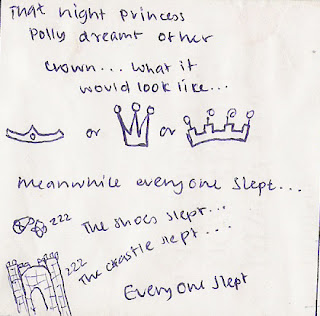 That night princess
polly dreamt other
crown... what it
would look like...
or or
meanwhile everyone slept...
zzz The shoes slept...
zzz The castle slept....
Everyone slept